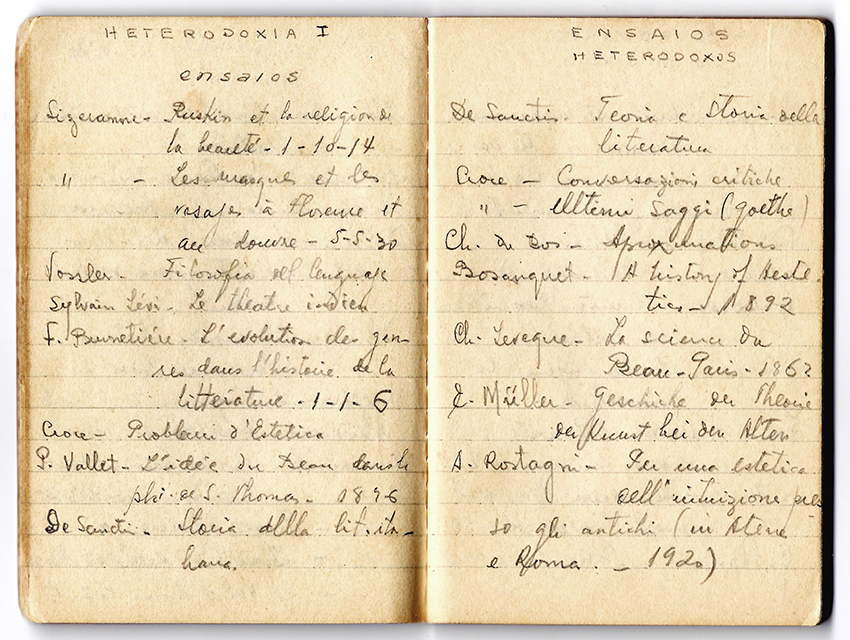 HETERODOXIA I
ensaios
Sizeranne - Ruskin et la religion de
la beauté - 1-10-14
" - Les masques et les
visages à Florence et
au Louvre - 5-5-30
Vossler - Filosofia del lenguaje
Sylvain Lévi - Le theatre indien
F. Brunetiére - L'evolution des gen-
res dans l'histoire de la
littérature - 1-1-6
Croce - Problemi d'Estetica
P. Vallet - L'idée du Beau dans la
phi. de S. Thomas - 1896
De Sanctis - Storia della lit. ita-
liana.
ENSAIOS
HETERODOXOS
De Sanctis - Teoria e Storia della
literatura
Croce - Conversazioni critiche
" - Ultimi Saggi (Goethe)
Ch. du Bos - Aproximations
Bosanquet - A history of Aeste-
tics - 1892
Ch. Leveque - La science du
Beau - Paris - 1862
E. Müller - Geschichte der Theorie
der Kunst bei den Alten
A. Rostagni - Per una estetica
dell'intuizione pres-
so gli antichi (in Atene
e Roma. - 1920)